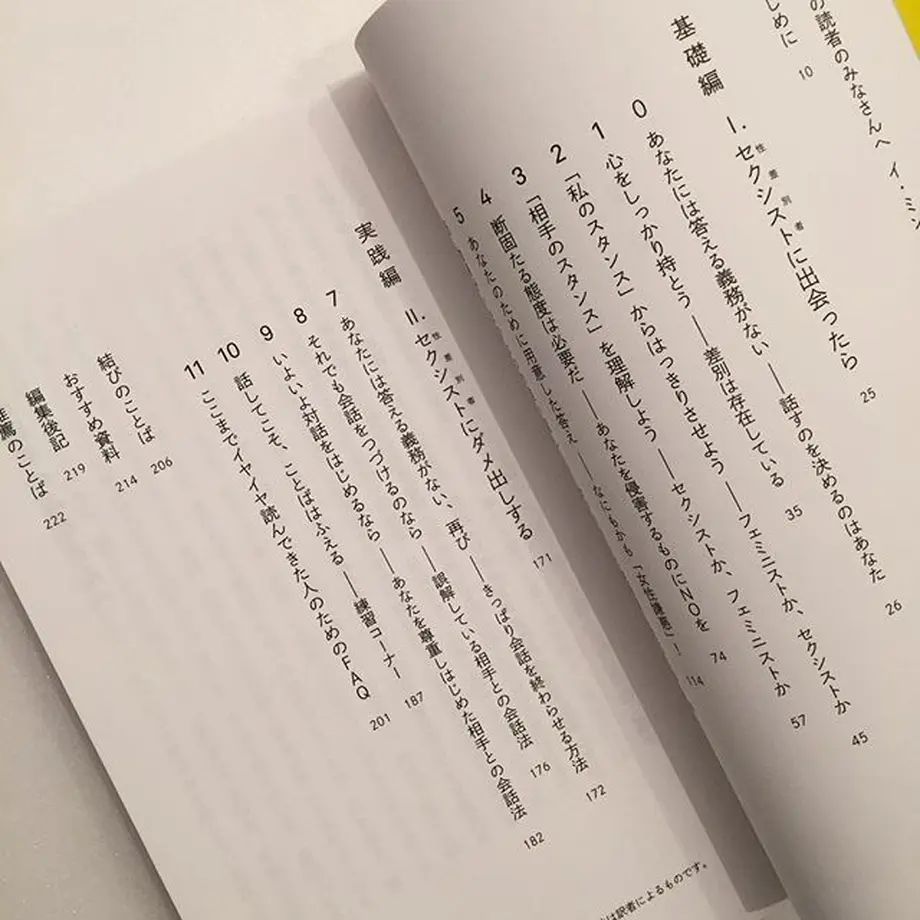 の読者のみなさんへ イ・ミン
じめに 10
基礎編 I. セクシストに出会ったら 25
性差別者
0 あなたには答える義務がない——話すのを決めるのはあなた 26
1 心をしっかり持とう——差別は存在している 35
2 「私のスタンス」からはっきりさせよう——フェミニストか、セクシストか 45
3 「相手のスタンス」を理解しよう——セクシストか、フェミニストか 57
4 断固たる態度は必要だ——あなたを侵害するものにNOを 74
5 あなたのために用意した答え——なにもかも「女性嫌悪」! 114
実践編 II. セクシストにダメ出しする 171
性差別者
7 あなたには答える義務がない、再び——きっぱり会話を終わらせる方法 172
8 それでも会話をつづけるのなら——誤解している相手との会話法 176
9 いよいよ対話をはじめるなら——あなたを尊重しはじめた相手との会話法 182
10 話してこそ、ことばはふえる——練習コーナー 187
11 ここまでイヤイヤ読んできた人のためのFAQ 201
結びのことば 206
おすすめ資料 214
編集後記 219
薦のことば 222
は訳者によるものです。